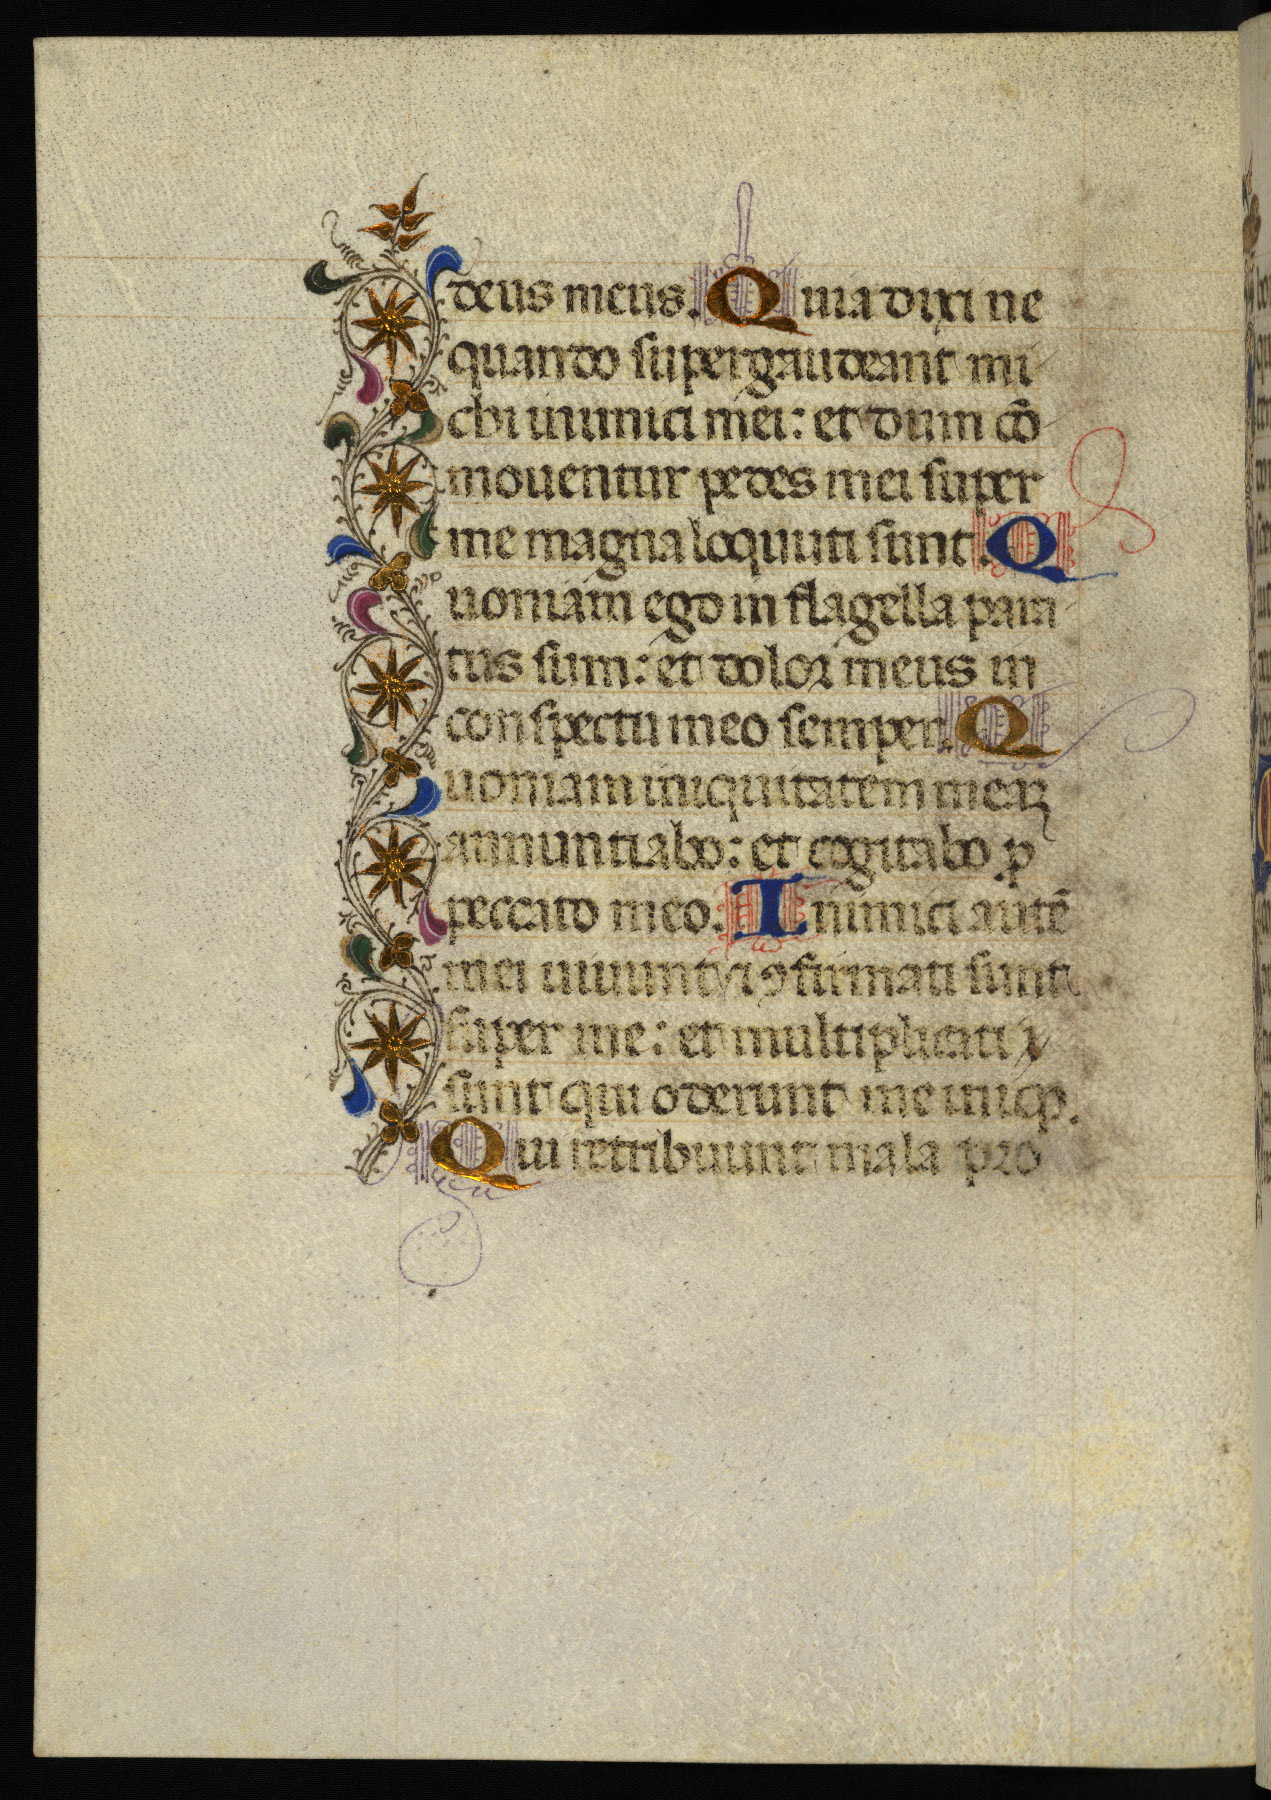 deus meus. Quia dixi ne
quando supergaudeant mi
chi inimici mei: et dum cō
moventur pedes mei super
me magna loquuti sunt. Q
uoniam ego in flagella para
tus sum: et dolor meus in
conspectu meo semper. Q
uoniam iniquitatem meaꝝ
annuntiabo: et cogitabo ꝓ
peccato meo. Inimici autē
mei uiuunt ⁊ ꝯfirmati sunt
super me: et multiplicati
sunt qui oderunt me iniq̨.
Qui retribuunt mala pro